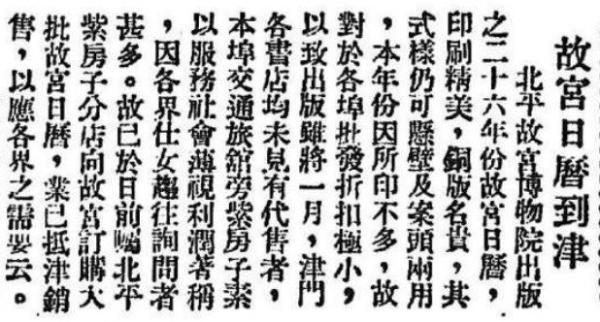 故宮日曆到津
北平故宮博物院出版
之二十六年份故宮日曆，
印刷精美，銅版名貴，其
式樣仍可懸壁及案頭兩用
，本年份因所印不多，故
對於各埠批發折扣極小，
以致出版雖將一月，津門
各書店均未見有代售者，
本埠交通旅館旁紫房子素
以服務社會薄視利潤著稱
，因各界仕女趨往詢問者
甚多。故已於日前囑北平
紫房子分店向故宮訂購大
批故宮日曆，業已抵津銷
售，以應各界之需要云。